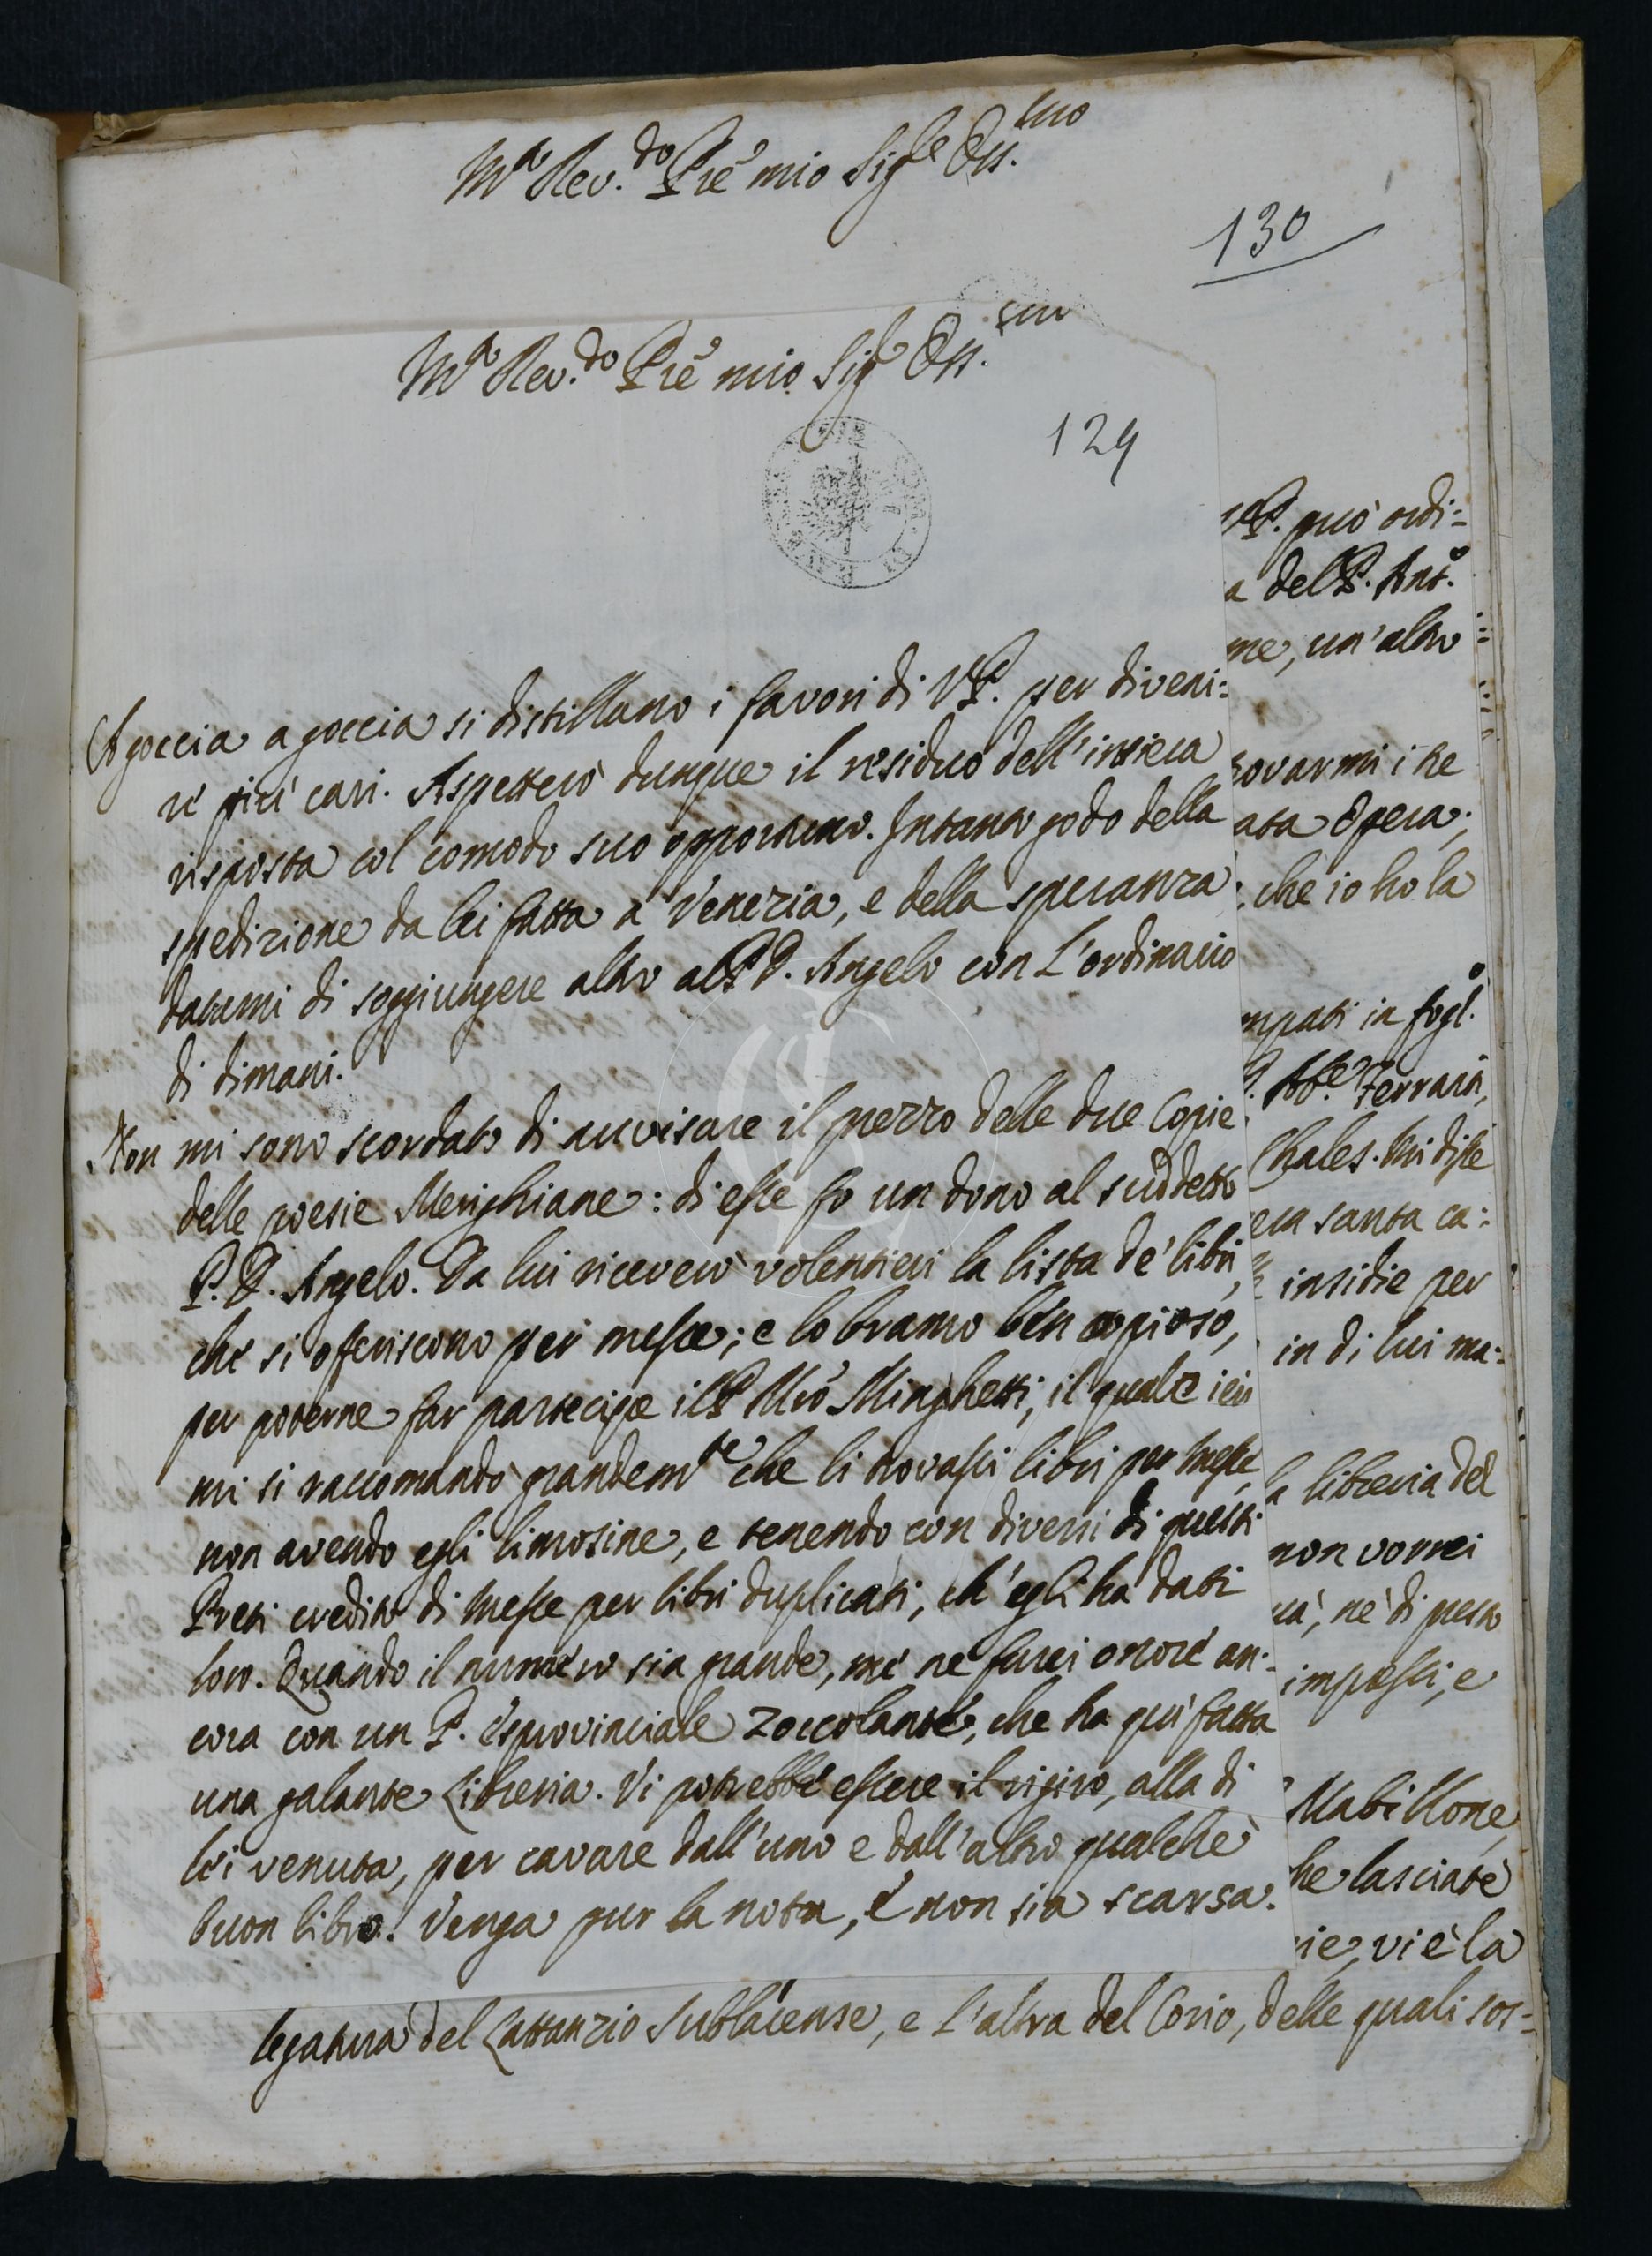 M.to Rev.do P̃re mio Sig.re Oss.mo
130
M.to Rev.do P̃re mio Sig.re Oss.mo
129
A goccia a goccia si distillano i favori di V.P. per diveni=
re più cari. Aspetterò dunque il residuo dell'intiera
risposta col comodo suo opportuno. Intanto godo della
spedizione da lei fatta a Venezia, e della speranza
datami di soggiungere altro al P. D. Angelo con l'ordinario
di dimani.
Non mi sono scordato di avvisare il prezzo delle due Copie
delle poesie Merighiane: di esse fo un dono al suddetto
P. D. Angelo. Da lui riceverò volentieri la lista de' libri,
che si offeriscono per messe; e lo bramo ben copioso,
per poterne far partecipe il P. Mro Minghetti, il quale ieri
mi si raccomandò grandem.te che li trovassi libri per messe,
non avendo egli limosine, e tenendo con diversi di questi
Preti credito di messe per libri duplicati, ch'egli ha dati
loro. Quando il numero sia grande, me ne farei onore an=
cora con un P. esprovinciale Zoccolante, che ha quì fatta
una galante Libreria. Vi potrebbe essere il rigiro, alla di
lei venuta, per cavare dall'uno e dall'altro qualche
buon libro. Venga pur la nota, e non sia scarsa.
P. può ordi=
a del P. Ant.o
me, un'altro
rovarmi i he
ata Opera;
che io ho la
mpati in fogl.o
Ab.e Ferrari,
Chales. Mi disse
era santa ca=
insidie per
in di lui ma=
la libreria del
non vorrei
rà, nè di presto
impossi, e
Mabillone,
he lasciate
ie, vi è la
legatura del Lattanzio Sublacense, e l'altra del Corio, delle quali sos=